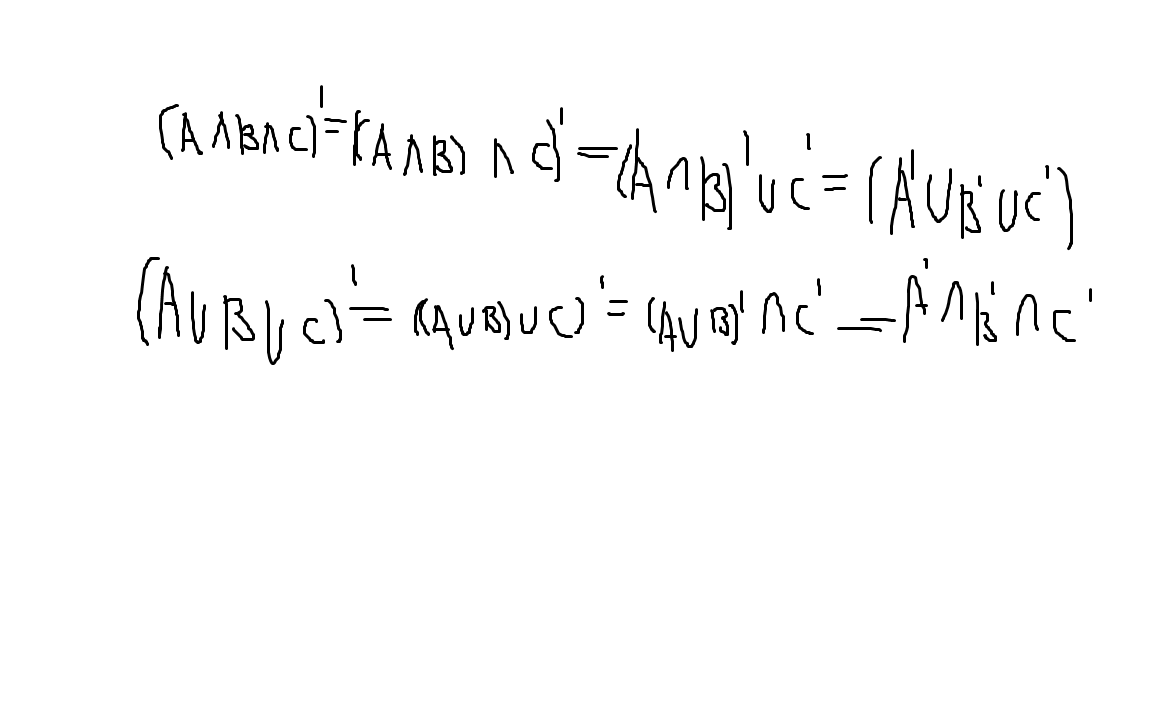 (A∩B∩C)'=((A∩B)∩C)'=(A∩B)'∪C'=(A'∪B'∪C')
(A∪B∪C)'=((A∪B)∪C)'=(A∪B)'∩C'=A'∩B'∩C'